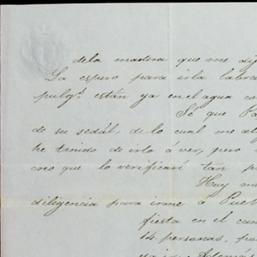 de la madera que me dij
La espero para irla labra
pulg.s están ya en el agua co
Sé que Pa
de su sedál, de lo cual me al
he tenido de irlo á ver, pero
creo que lo verificari tan p
Muy
diligencia para irme a Pueb
fiesta en el cam
14 personas, pa